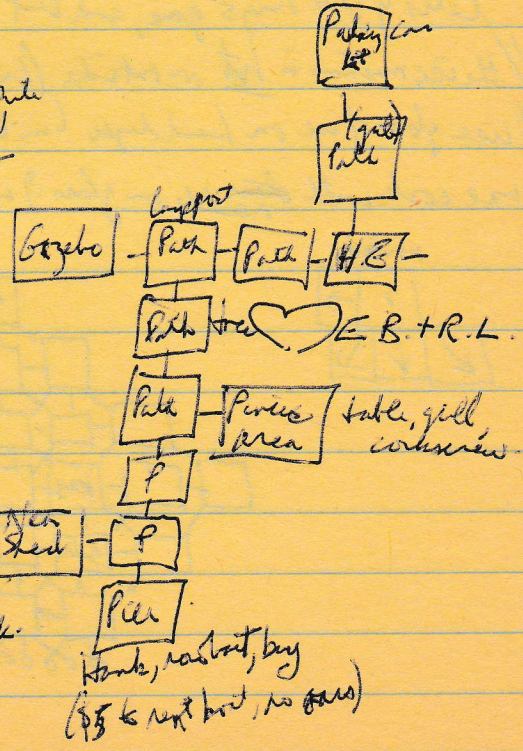 Parking
lot
(gate)
Path
lamppost
Gazebo
Path
Path
H.E
Path
tree
E B. + R. L.
Path
Picnic
area
table, grill,
corkscrew
P
Near
Shed
P
Pier
Hank, rowboat, buoy
($5 to rent boat, no oars)